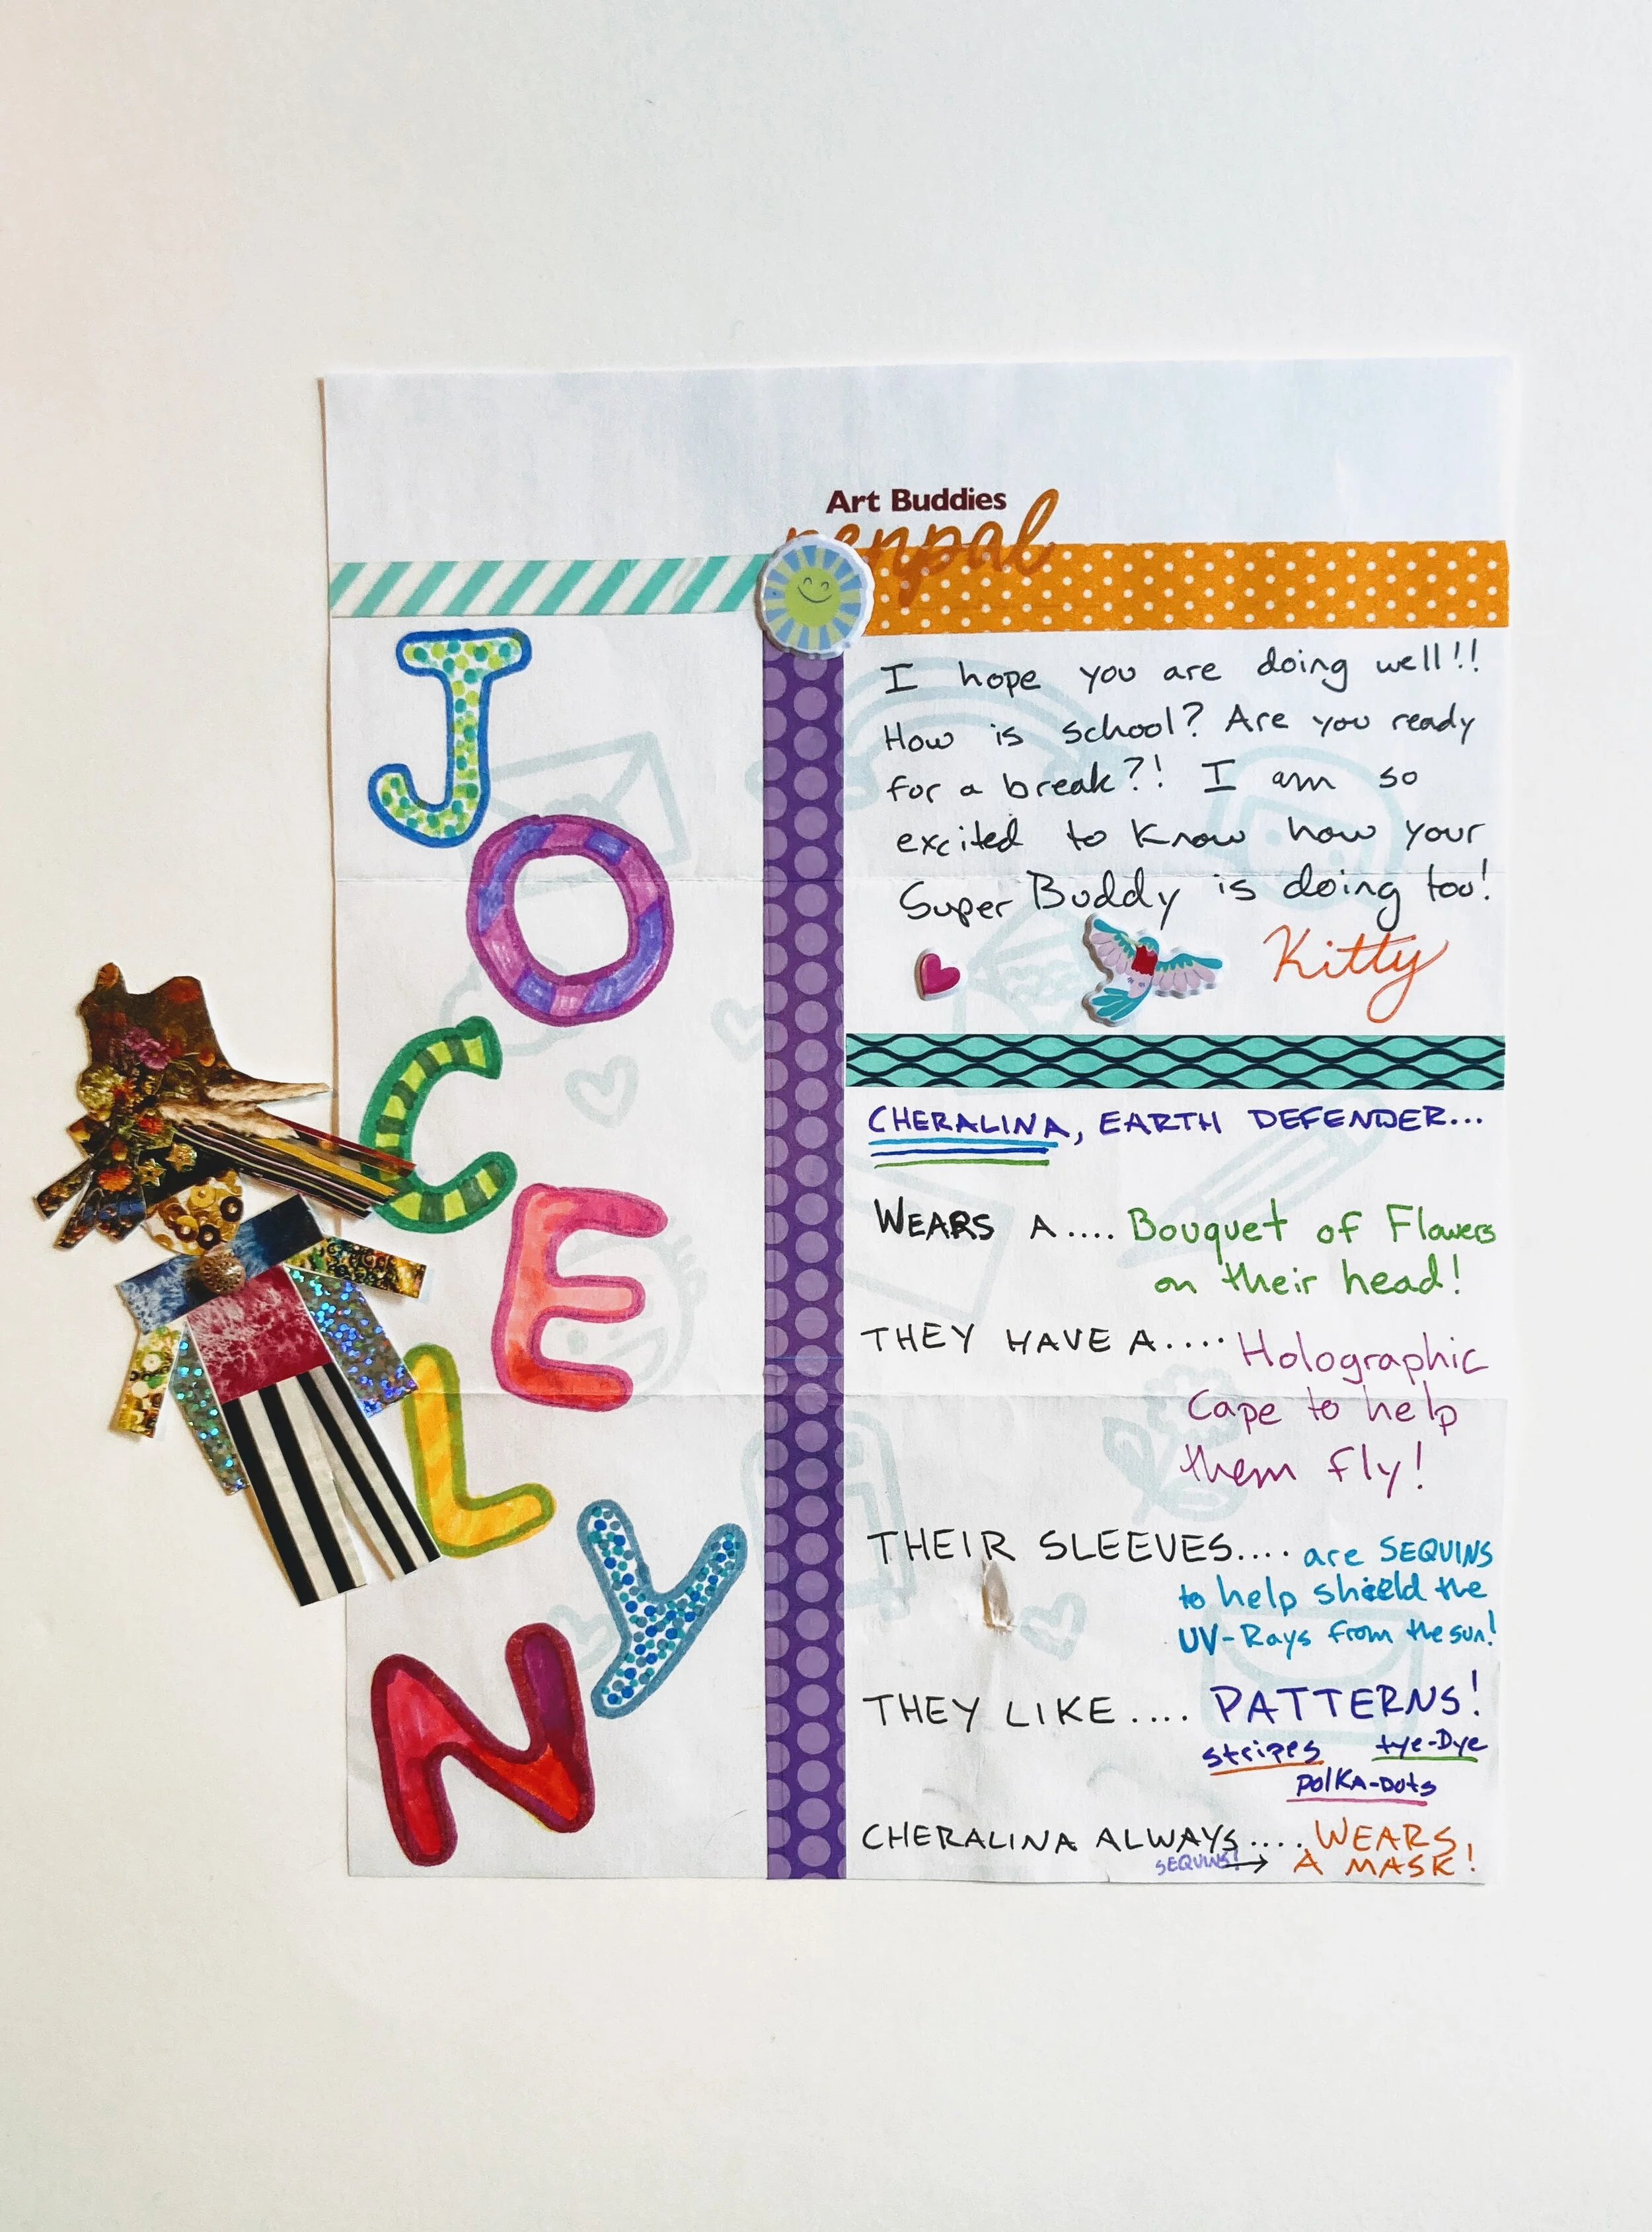 Art Buddies
penpal
JOCELYN
I hope you are doing well!!
How is school? Are you ready
for a break?! I am so
excited to know how your
Super Buddy is doing too!
Kitty
CHERALINA, EARTH DEFENDER...
WEARS A.... Bouquet of Flowers
on their head!
THEY HAVE A.... Holographic
Cape to help
them fly!
THEIR SLEEVES.... are SEQUINS
to help shield the
UV-Rays from the sun!
THEY LIKE.... PATTERNS!
stripes tye-Dye
polKA-Dots
CHERALINA ALWAYS.... WEARS
SEQUINS! → A MASK!